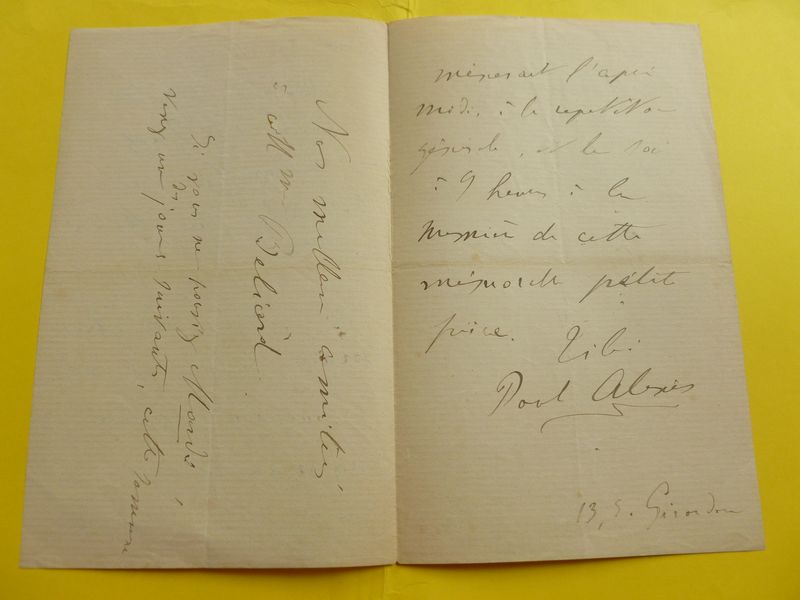 l'après
midi, à la répétition
générale, et le soir
à 9 heures à la
de cette
petite
pièce.
Tibi
Paul Alexis
13, r. Girardon
Nos meilleures amitiés,
à Béliard.
Si vous ne pouviez Mardi,
venez un des jours suivants, cette semaine